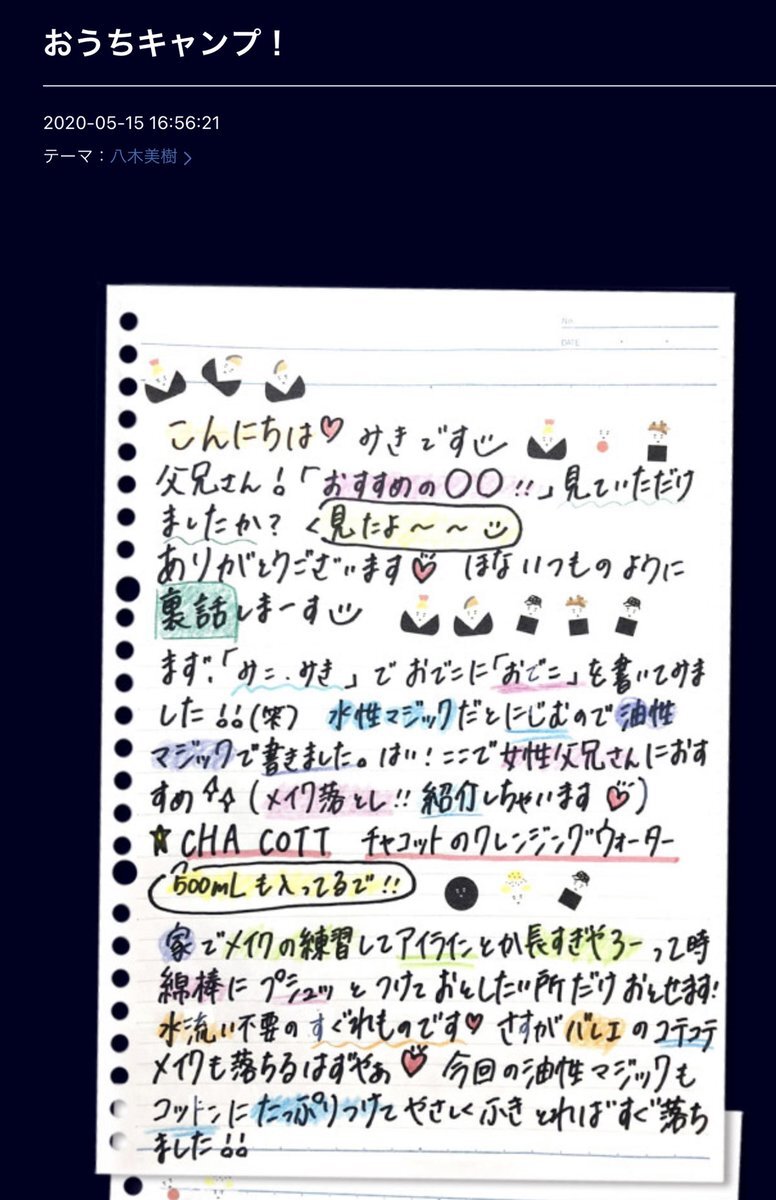 おうちキャンプ！
2020-05-15 16:56:21
テーマ：八木美樹 >
No.
DATE
こんにちは♡ みきです
父兄さん！「おすすめの〇〇!!」見ていただけ
ましたか？ <見たよ〜〜
ありがとうございます♡ ほな いつものように
裏話しまーす
まず、「みこ.みき」でおでこに「おでこ」を書いてみま
した!!(笑) 水性マジックだとにじむので油性
マジックで書きました。はい！ここで女性父兄さんにおす
すめ (メイク落とし!! 紹介しちゃいます♡)
★CHA COTT チャコットのクレンジングウォーター
500mLも入ってるで!!
家でメイクの練習してアイラインとか長すぎやろーって時
綿棒にプシュッとつけておとしたい所だけおとせます!
水流い不要のすぐれものです♥ さすがバレエのコテコテ
メイクも落ちるはずやぁ♥ 今回の油性マジックも
コットンにたっぷりつけてやさしくふきとればすぐ落ち
ました!!